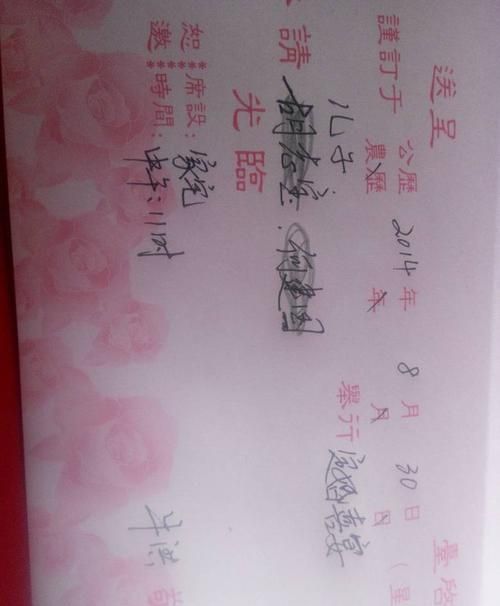 送呈 臺啓
謹訂于 公歷 2014 年 8 月 30 日（星
農歷 年 月 日
儿子 舉行 定婚喜宴
請
光臨
恕 席設：家宅
邀 時間：中午：11时